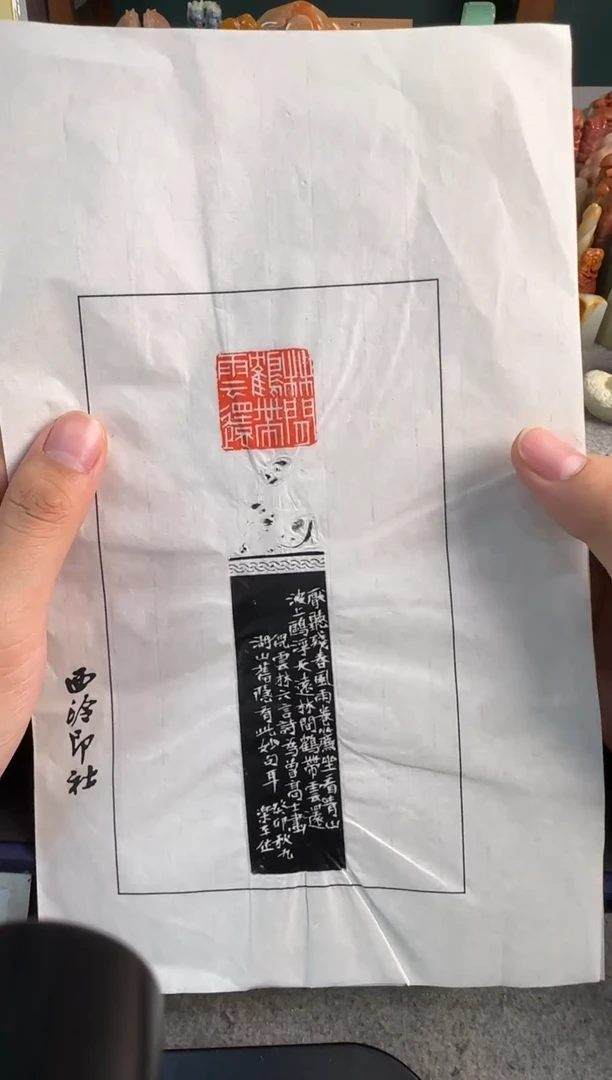 林間
鶴帶
雲還
厭聽殘春風雨卷簾坐看青山
波上鷗浮天遠林間鶴帶雲還
倪雲林六言詩為曾高士畫
湖山舊隱有此妙句耳
癸卯秋九
作
西泠印社